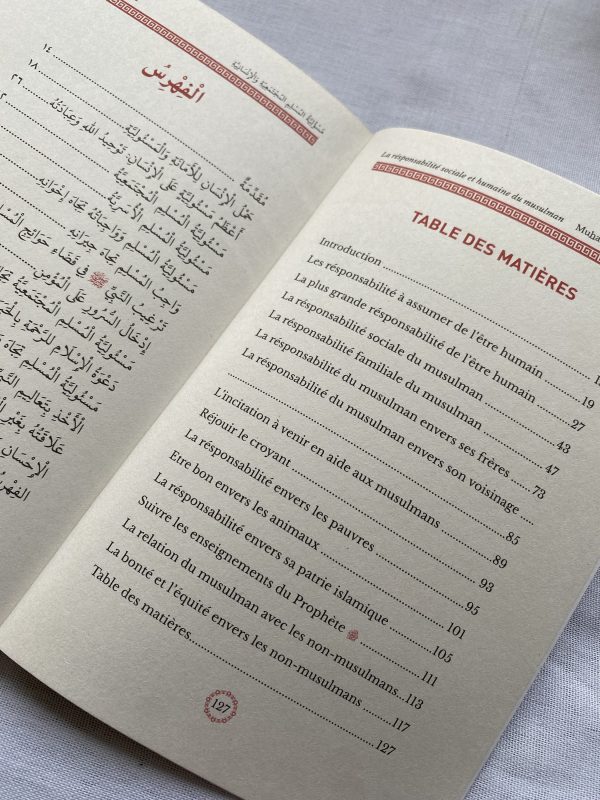 مَسْؤُلِيَّةُ المُسْلِمِ المُجْتَمَعِيَّةُ وَالْإِنْسَانِيَّةُ
الْفِهْرِسُ
مُقَدِّمَةٌ ١٤
حَمْلُ الْإِنْسَانِ لِلْأَمَانَةِ وَالْمَسْئُولِيَّةِ ١٨
أَعْظَمُ مَسْئُولِيَّةٍ عَلَى الْإِنْسَانِ: تَوْحِيدُ اللهِ وَعِبَادَتُهُ ٢٦
مَسْئُولِيَّةُ الْمُسْلِمِ الْمُجْتَمَعِيَّةُ
مَسْئُولِيَّةُ الْمُسْلِمِ الْأُسَرِيَّةُ
مَسْئُولِيَّةُ الْمُسْلِمِ وَوَاجِبَاتُهُ تُجَاهَ إِخْوَانِهِ
وَاجِبُ الْمُسْلِمِ تُجَاهَ جِيرَانِهِ
تَرْغِيبُ النَّبِيِّ ﷺ فِي قَضَاءِ حَوَائِجِ الْمُسْلِمِ
إِدْخَالُ السُّرُورِ عَلَى الْمُؤْمِنِ
مَسْئُولِيَّةُ الْمُسْلِمِ الْمُجْتَمَعِيَّةُ تُجَاهَ
دَعْوَةُ الْإِسْلَامِ لِلرَّحْمَةِ
مَسْئُولِيَّةُ الْمُسْلِمِ تُجَاهَ
الْأَخْذُ بِتَعَالِيمِ
عَلَاقَتُهُ بِغَيْرِ
الْإِحْسَانِ
الفِهْرِ
La résponsabilité sociale et humaine du musulman Muha
TABLE DES MATIÈRES
Introduction
Les résponsabilité à assumer de l'être humain 19
La plus grande résponsabilité de l'être humain 27
La résponsabilité sociale du musulman 43
La résponsabilité familiale du musulman 47
La résponsabilité du musulman envers ses frères 73
La résponsabilité du musulman envers son voisinage
85
L'incitation à venir en aide aux musulmans 89
Réjouir le croyant 93
La résponsabilité envers les pauvres 95
Etre bon envers les animaux 101
La résponsabilité envers sa patrie islamique 105
Suivre les enseignements du Prophète ﷺ 111
La relation du musulman avec les non-musulmans 113
La bonté et l'équité envers les non-musulmans 117
Table des matières 127
127